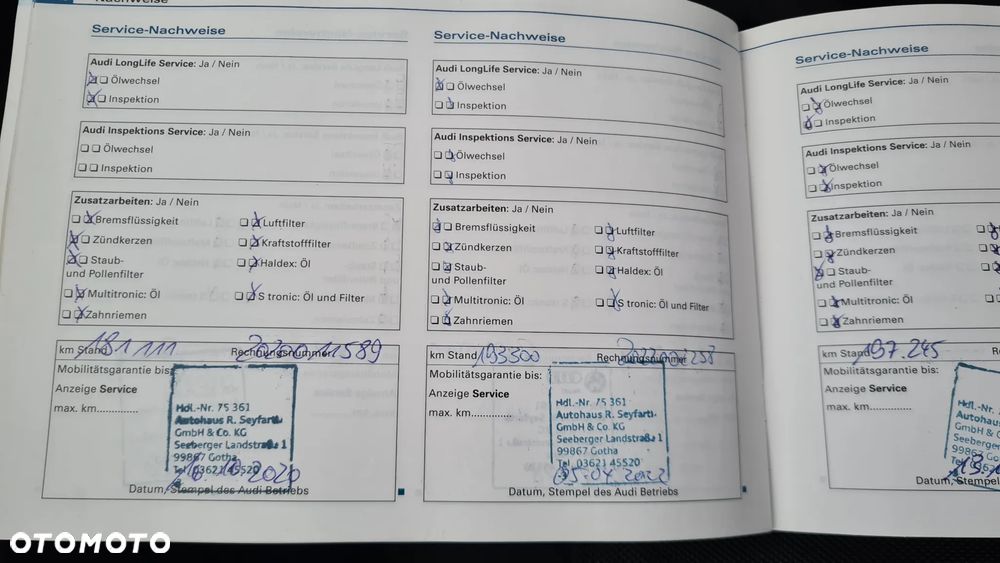 Nachweise
Service-Nachweise
Audi LongLife Service: Ja / Nein
Ölwechsel
Inspektion
Audi Inspektions Service: Ja / Nein
Ölwechsel
Inspektion
Zusatzarbeiten: Ja / Nein
Bremsflüssigkeit Luftfilter
Zündkerzen Kraftstofffilter
Staub- Haldex: Öl
und Pollenfilter
Multitronic: Öl S tronic: Öl und Filter
Zahnriemen
km Stand 181 111 Rechnungsnummer
Mobilitätsgarantie bis:
Anzeige Service
max. km..............
Hdl.-Nr. 75 361
Autohaus R. Seyfarth
GmbH & Co. KG
Seeberger Landstraße 1
99867 Gotha
Tel. 03621 45520
2020
Datum, Stempel des Audi Betriebs
Service-Nachweise
Audi LongLife Service: Ja / Nein
Ölwechsel
Inspektion
Audi Inspektions Service: Ja / Nein
Ölwechsel
Inspektion
Zusatzarbeiten: Ja / Nein
Bremsflüssigkeit Luftfilter
Zündkerzen Kraftstofffilter
Staub- Haldex: Öl
und Pollenfilter
Multitronic: Öl S tronic: Öl und Filter
Zahnriemen
km Stand 193300 Rechnungsnummer
Mobilitätsgarantie bis:
Anzeige Service
max. km..............
Hdl.-Nr. 75 361
Autohaus R. Seyfarth
GmbH & Co. KG
Seeberger Landstraße 1
99867 Gotha
Tel. 03621 45520
05.04.2022
Datum, Stempel des Audi Betriebs
Service-Nachweise
Audi LongLife Service: Ja / Nein
Ölwechsel
Inspektion
Audi Inspektions Service: Ja / Nein
Ölwechsel
Inspektion
Zusatzarbeiten: Ja / Nein
Bremsflüssigkeit
Zündkerzen
Staub-
und Pollenfilter
Multitronic: Öl
Zahnriemen
km Stand 197.245
Mobilitätsgarantie bis:
Anzeige Service
max. km..............
Hdl.-Nr.
Autohaus
GmbH & Co.
Seeberger
99867 G
Tel. 0362
Datum, Stempel
OTOMOTO